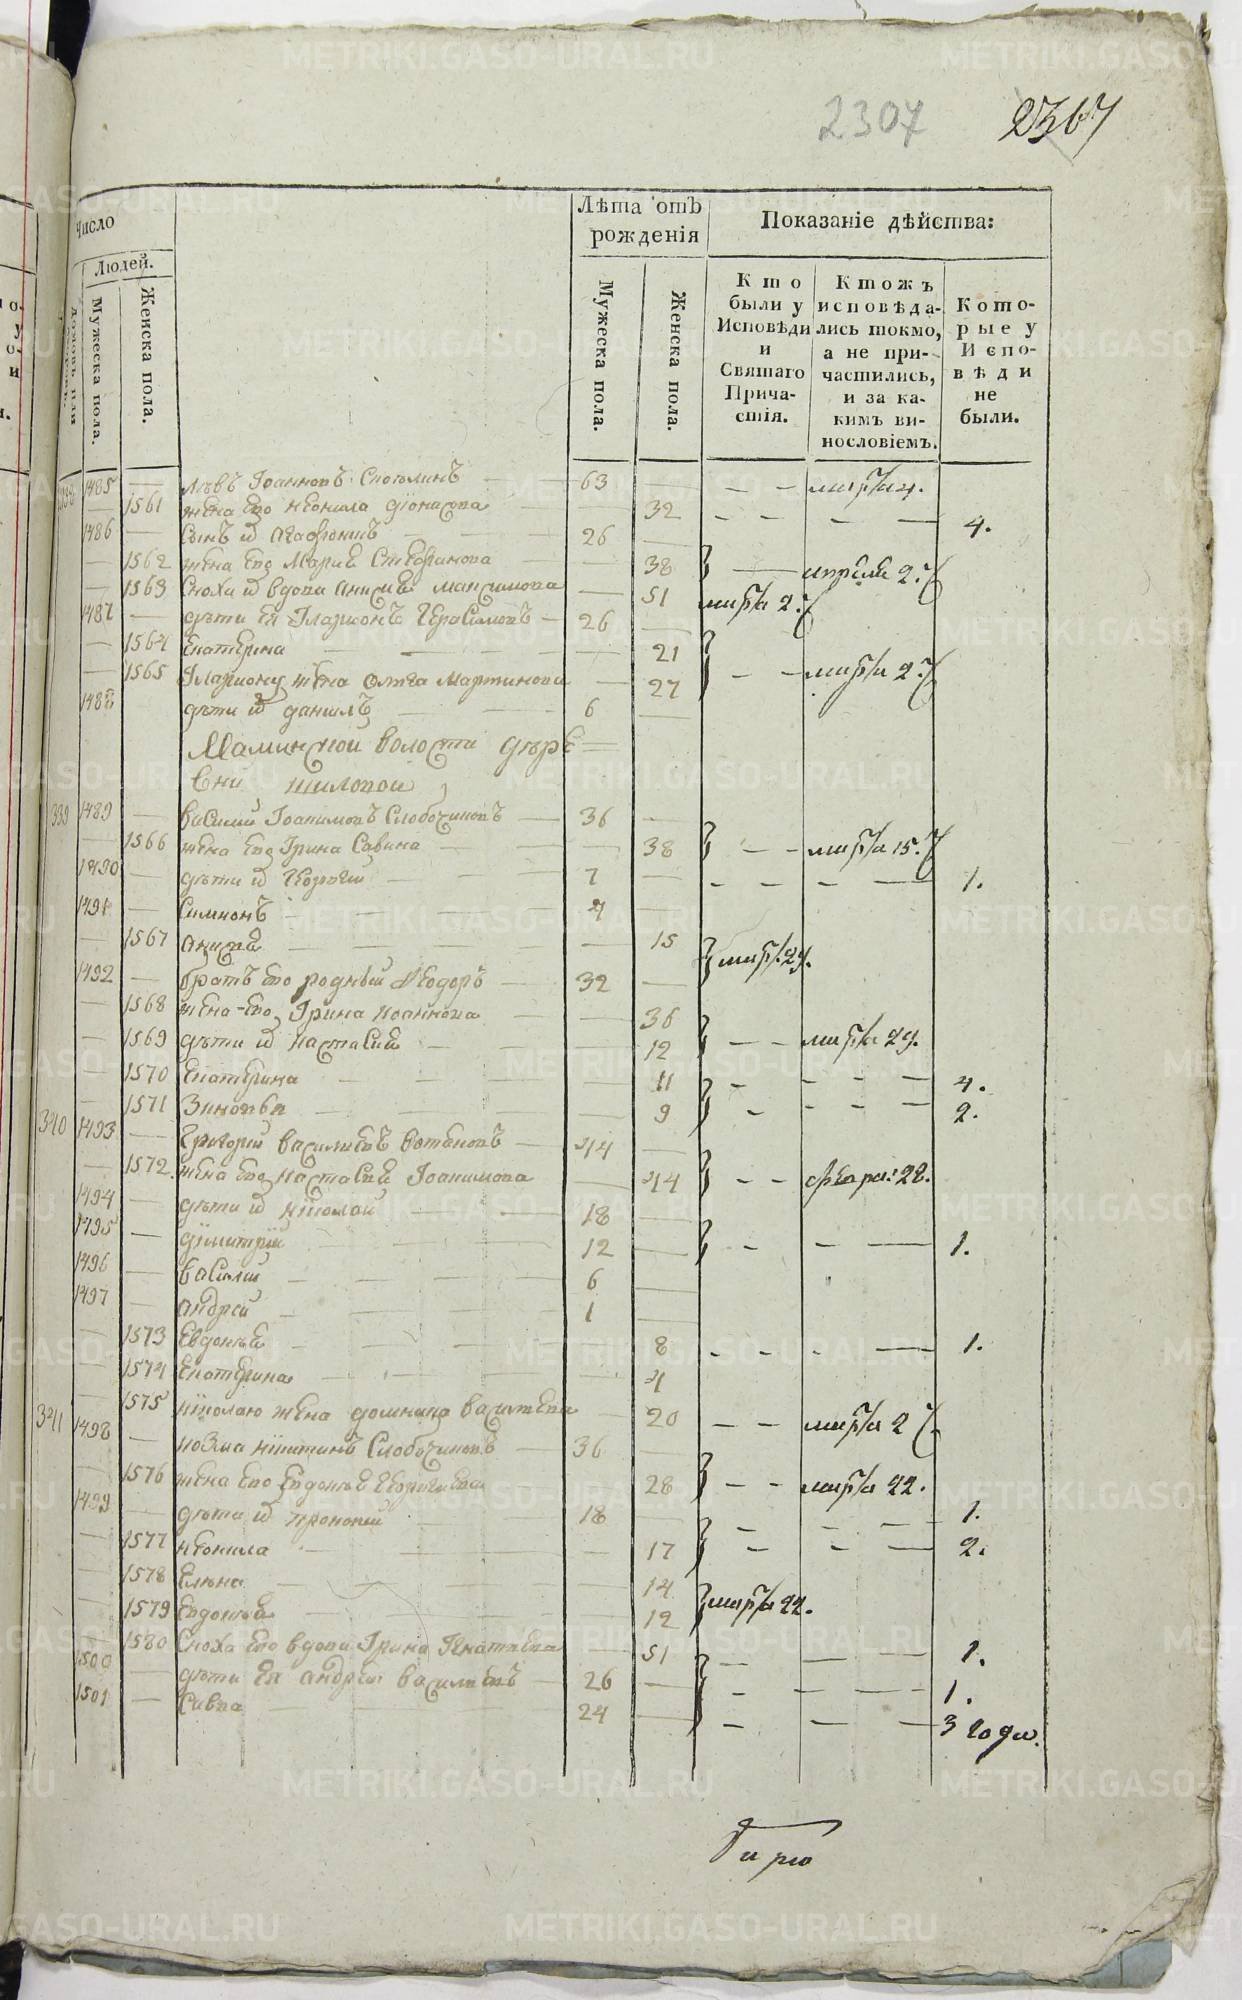 2307 2367
Число
Людей.
Мужеска пола.
Женска пола.
Лѣта отъ рожденія
Мужеска пола.
Женска пола.
Показаніе дѣйства:
Кто были у Исповѣди и Святаго Причастія.
Ктожъ исповѣдались токмо, а не причастились, и за какимъ винословіемъ.
Которые у Исповѣди не были.
338 1485 — Левъ Іоанновъ 63 — марта 4.
— 1561 жена его Неонила Діонисова — 32 4.
1486 — сынъ и Агафоникъ 26 —
— 1562 жена его Марія Стефанова — 38 апрѣля 2
— 1563 сноха и вдова Анисія Максимова — 51 марта 2
1487 — дѣти ея Иларіонъ Герасимовъ 26 —
— 1564 Екатерина — 21
— 1565 Иларіону жена Олга Мартинова — 27 марта 2
1488 дѣти и Даніилъ 6 —
Маминской волости дере
вни Шиловой
339 1489 — Василий Іоакимовъ Слободчиковъ 36 —
— 1566 жена его Ірина Савина — 38 марта 15.
1490 — дѣти и Георгий 7 — 1.
1491 — Симионъ 4 —
— 1567 Анисія — 15
1492 — братъ его родный Феодоръ 32 — март. 29.
— 1568 жена его Ірина Иоаннова — 36
— 1569 дѣти и Настасия — 12 марта 29.
— 1570 Екатерина — 11 4.
— 1571 Зиновья — 9 2.
340 1493 — Григорий Василиевъ 44 —
— 1572. жена его Настасія Іоакимова — 44 февра: 28.
1494 — дѣти и Николай 18 —
1495 — Димитрій 12 — 1.
1496 — Василий 6 —
1497 — Андрей 1 —
— 1573 Евдокія — 8 1.
— 1574 Екатерина — 4
— 1575 Николаю жена Домника Василиева — 20 марта 2
341 1498 — Козма Никитинъ Слободчиковъ 36 —
— 1576 жена его Евдокія Георгиева — 28 марта 22.
1499 — дѣти и Прокопий 18 1.
— 1577 Неонила — 17 2.
— 1578 Елена — 14
— 1579 Евдокия — 12 марта 22.
— 1580 сноха его вдова Ірина Игнатиева — 51 1.
1500 — дѣти ея Андрей Василиевъ 26 — 1.
1501 — Савва 24 — 3 годи.